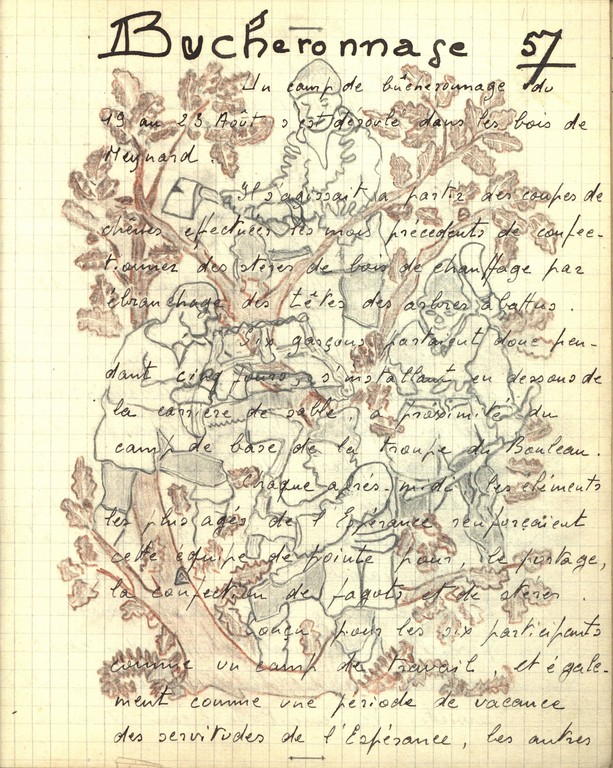 Bucheronnage 57
Un camp de bûcheronnage du
19 au 23 Août s'est déroulé dans les bois de
Meynard.
Il s'agissait à partir des coupes de
chênes effectuées les mois précédents de confec-
tionner des stères de bois de chauffage par
ébranchage des têtes des arbres abattus.
Six garçons partaient donc pen-
dant cinq jours, s'installant en dessous de
la carrière de sable, à proximité du
camp de base de la troupe du Bouleau.
Chaque après-midi les éléments
les plus agés de l'Espérance renforçaient
cette équipe de pointe pour, le portage,
la confection de fagots et de stères.
Conçu pour les six participants
comme un camp de travail, et égale-
ment comme une période de vacance
des servitudes de l'Espérance, les autres